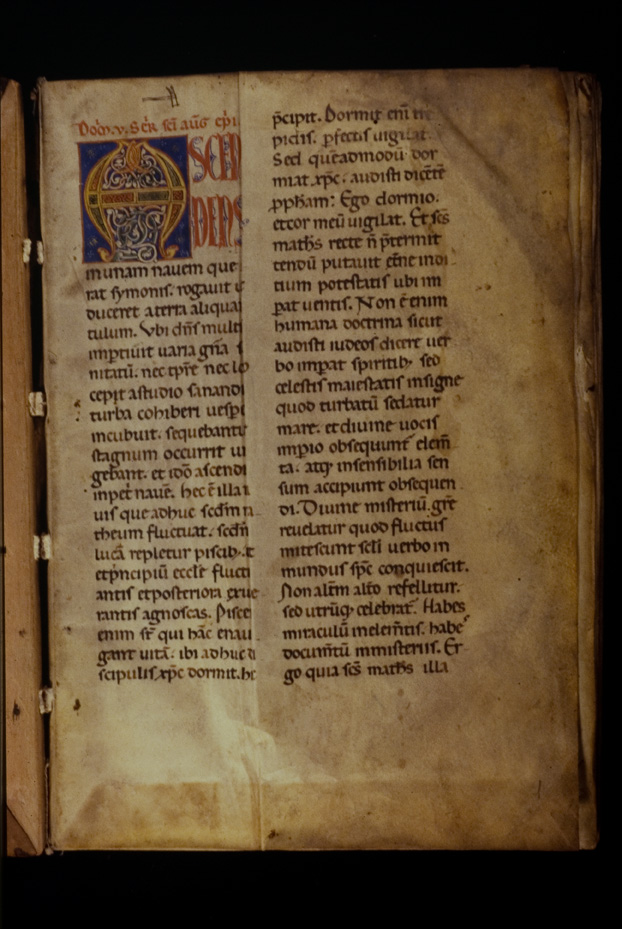 Dom̅. v. Ser̅ sc̅i aug̅ ep̅i
ASCEN
DENS
in unam nauem que
rat symonis. rogauit
duceret a terra aliquan
tulum. Vbi dn̅s multi
inp̅tiuit uaria gn̅a
nitatu̅. nec tp̅re nec lo
cepit a studio sanandi
turba cohiberi uespe
incubuit. sequebantur
stagnum occurrit
gebant. et ido̅ ascendi
in pet̅ naue̅. hec e̅ illa
uis que adhuc scd̅m
theum fluctuat. scd̅m
luca̅ repletur piscib;
et p̅ncipiu̅ eccl̅e flucti
antis et posteriora exube
rantis agnoscas. Pisce
enim st̅ qui hac̅ enaui
gant uita̅. ibi adhuc di
scipulis xp̅c dormit. hc
p̅cipit. Dormit eni̅
pidis. p̅fectis uigilat.
Sed que̅admodu̅ dor
miat xp̅c. audisti dice̅te̅
p̅ph̅am: Ego dormio.
et cor meu̅ uigilat. Et sc̅s
math̅s recte n̅ p̅termit
tendu̅ putauit et̅ne indi
tium potestatis ubi im
p̅at uentis. Non e̅ enim
humana doctrina sicut
audisti iudeos dicere uer
bo imp̅at spiritib; sed
celestis maiestatis insigne
quod turbatu̅ sedatur
mare. et diuine uocis
imp̅io obsequunt̅ elem̅
ta. atq; insensibilia sen
sum accipiunt obsequen
di. Diuine misteriu̅ gr̅e
reuelatur quod fluctus
mitescunt seli̅ uerbo in
mundus sp̅c conquiescit.
Non alt̅m alt̅o refellitur.
sed utru̅q; celebrat̅. Habes
miraculu̅ in elem̅tis. habes
docum̅tu̅ in misteriis. Er
go quia sc̅s math̅s illa